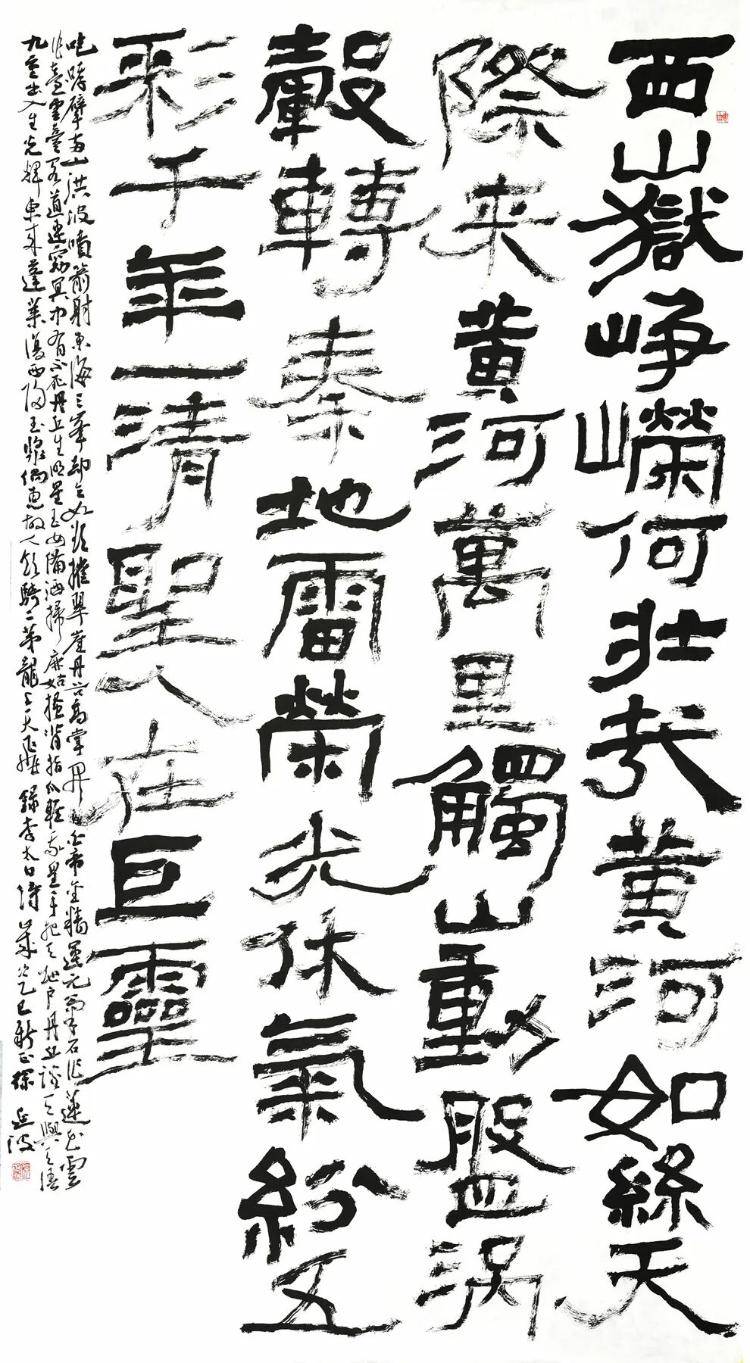 西嶽峥嶸何壯哉黄河如絲天
際来黄河萬里觸山動盤渦
轂轉秦地雷榮光休氣紛五
彩千年一清聖人在巨靈
咆哮擘两山洪波噴箭射東海三峰却立如欲摧翠崖丹谷高掌開白帝金精運元氣石作蓮花雲
作臺雲臺閣道連窈冥中有不死丹丘生明星玉女備洒掃麻姑搔背指爪輕我皇手把天地户丹丘談天與天語
九重出入生光輝東来蓬萊復西歸玉漿倘惠故人飲騎二茅龍上天飛録李太白詩歲次乙巳新正延波